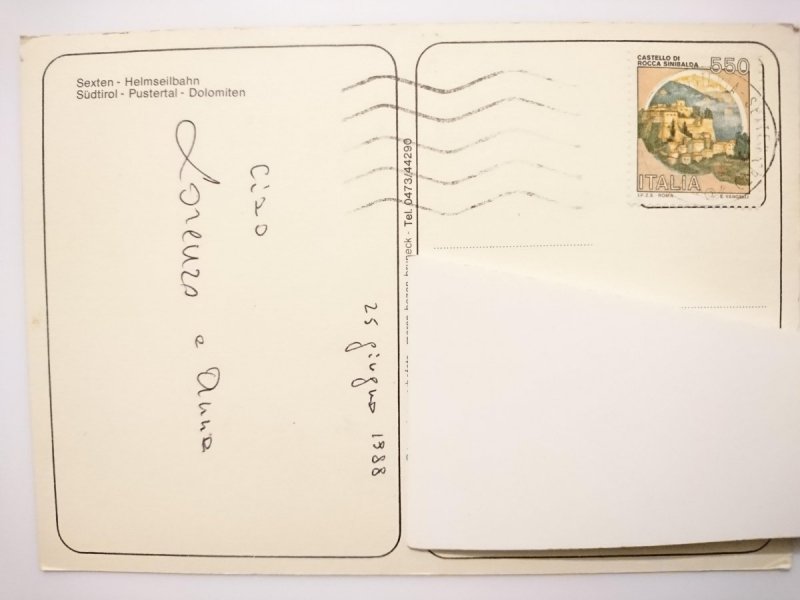 Sexten - Helmseilbahn
Südtirol - Pustertal - Dolomiten
25 giugno 1988
Ciao
Lorenzo e Anna
Tel. 0473/44290
CASTELLO DI
ROCCA SINIBALDA
550
ITALIA
I.P.Z.S. ROMA